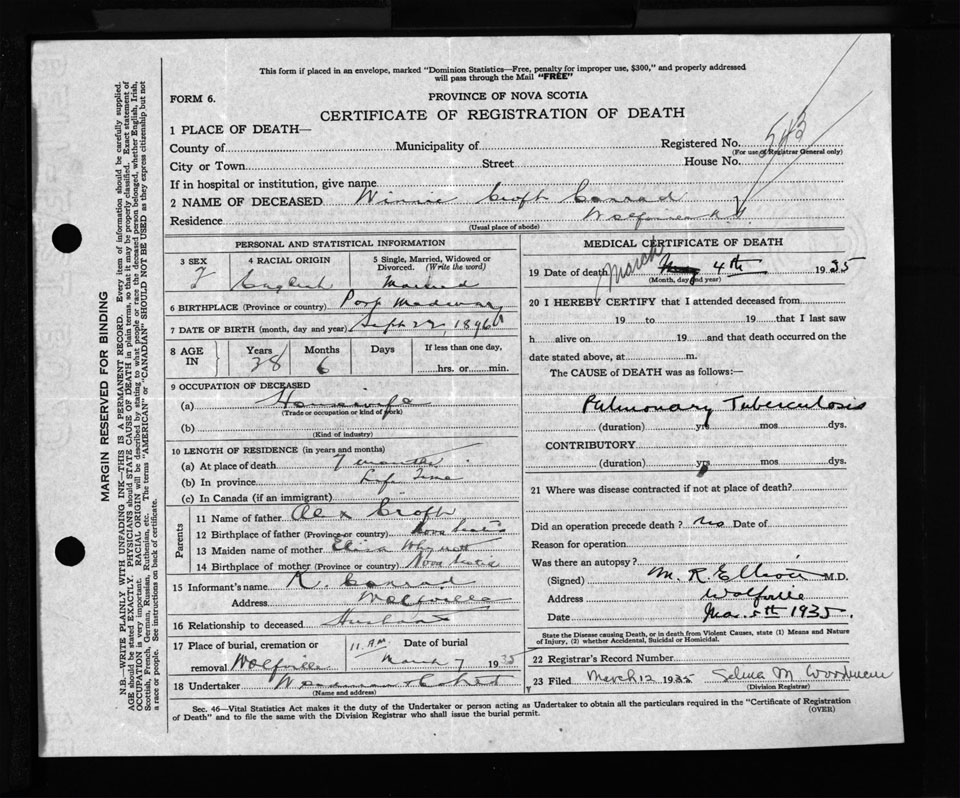 This form if placed in an envelope, marked "Dominion Statistics—Free, penalty for improper use, $300," and properly addressed
will pass through the Mail "FREE"
FORM 6.
PROVINCE OF NOVA SCOTIA
CERTIFICATE OF REGISTRATION OF DEATH
1 PLACE OF DEATH—
County of Municipality of Registered No. 543
(For use of Registrar General only)
City or Town Street House No.
If in hospital or institution, give name
2 NAME OF DECEASED Winnie Croft Conrad
Residence Wolfville N.S.
(Usual place of abode)
PERSONAL AND STATISTICAL INFORMATION
3 SEX F
4 RACIAL ORIGIN English
5 Single, Married, Widowed or
Divorced. (Write the word)
Married
6 BIRTHPLACE (Province or country) Port Medway
7 DATE OF BIRTH (month, day and year) Sept 22, 1896
8 AGE IN Years 38 Months 6 Days If less than one day,
hrs. or min.
9 OCCUPATION OF DECEASED
(a) Housewife
(Trade or occupation or kind of work)
(b)
(Kind of industry)
10 LENGTH OF RESIDENCE (in years and months)
(a) At place of death 7 months
(b) In province Life Time
(c) In Canada (if an immigrant)
Parents
11 Name of father Alex Croft
12 Birthplace of father (Province or country) Nova Scotia
13 Maiden name of mother Eliza Whynott
14 Birthplace of mother (Province or country) Nova Scotia
15 Informant's name R. Conrad
Address Wolfville
16 Relationship to deceased Husband
17 Place of burial, cremation or
removal Wolfville
11 A.M. Date of burial
March 7 1935
18 Undertaker Woodman
(Name and address)
MEDICAL CERTIFICATE OF DEATH
19 Date of death March 4th 1935
(Month, day and year)
20 I HEREBY CERTIFY that I attended deceased from
19 to 19 that I last saw
h alive on 19 and that death occurred on the
date stated above, at m.
The CAUSE of DEATH was as follows:—
Pulmonary Tuberculosis
(duration) yrs mos dys.
CONTRIBUTORY
(duration) yrs mos dys.
21 Where was disease contracted if not at place of death?
Did an operation precede death? no Date of
Reason for operation
Was there an autopsy?
(Signed) M. R. Elliott M.D.
Address Wolfville
Date Mar. 5th 1935
State the Disease causing Death, or in death from Violent Causes, state (1) Means and Nature
of Injury, (2) whether Accidental, Suicidal or Homicidal.
22 Registrar's Record Number
23 Filed March 12 1935 Selina M Woodman
(Division Registrar)
Sec. 46—Vital Statistics Act makes it the duty of the Undertaker or person acting as Undertaker to obtain all the particulars required in the "Certificate of Registration
of Death" and to file the same with the Division Registrar who shall issue the burial permit.
(OVER)
MARGIN RESERVED FOR BINDING
N.B.—WRITE PLAINLY WITH UNFADING INK—THIS IS A PERMANENT RECORD. Every item of information should be carefully supplied.
AGE should be stated EXACTLY. PHYSICIANS should STATE CAUSE OF DEATH in plain terms, so that it may be properly classified. Exact statement of
OCCUPATION is very important. RACIAL ORIGIN will be described by stating to what people or race the deceased person belonged, whether English, Irish,
Scottish, French, German, Russian, Ruthenian, etc. The terms "AMERICAN" or "CANADIAN" SHOULD NOT BE USED as they express citizenship but not
a race or people. See instructions on back of certificate.